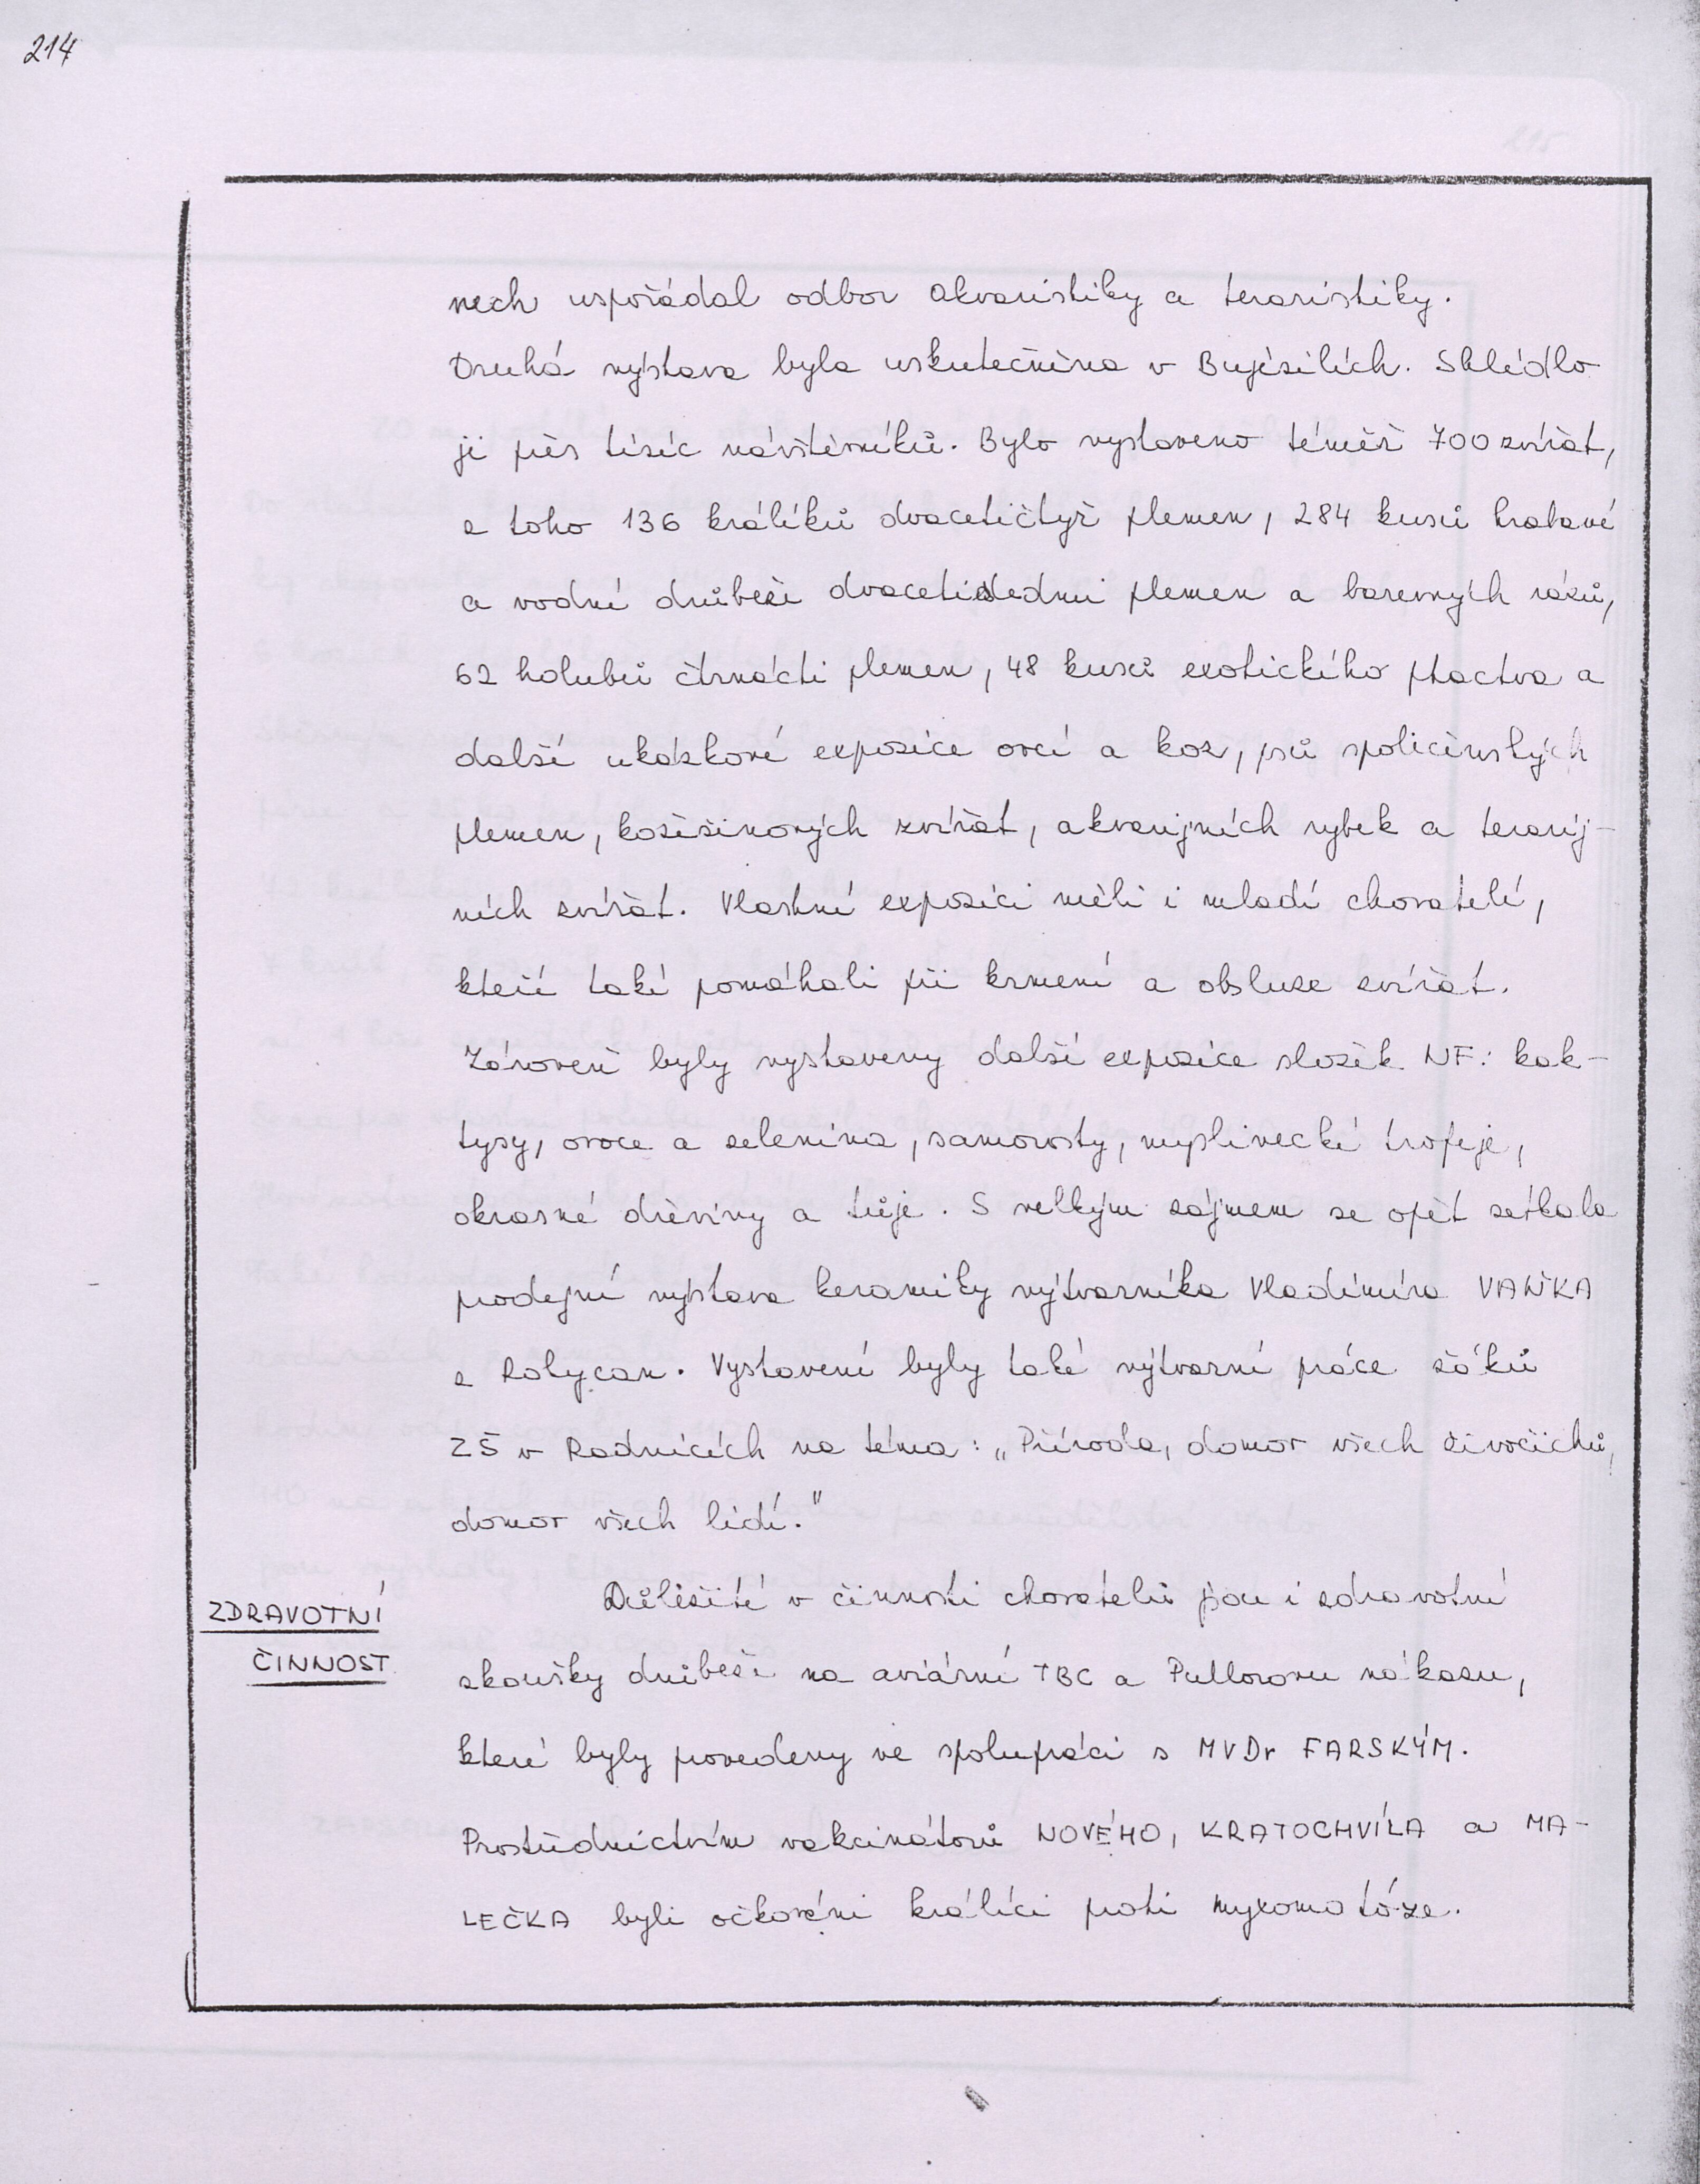 214
nech uspořádal odbor akvaristiky a teraristiky.
Druhá výstava byla uskutečněna v Bujesilích. Shlédlo
ji přes tisíc návštěvníků. Bylo vystaveno téměř 700 zvířat,
z toho 136 králíků dvacetičtyř plemen, 284 kusů hrabavé
a vodní drůbeže dvacetisedmi plemen a barevných rázů,
62 holubů čtrnácti plemen, 48 kusů exotického ptactva a
další ukázkové expozice ovcí a koz, psů společenských
plemen, kožešinových zvířat, akvarijních rybek a terarij-
ních zvířat. Vlastní expozici měli i mladí chovatelé,
kteří také pomáhali při krmení a obsluze zvířat.
Zároveň byly vystaveny další expozice složek NF: kak-
tysy, ovoce a zelenina, samorosty, myslivecké trofeje,
okrasné dřeviny a túje. S velkým zájmem se opět setkala
prodejní výstava keramiky výtvarníka Vladimíra VAŇKA
z Rokycan. Vystavené byly také výtvarné práce žáků
ZŠ v Radnicích na téma: „Příroda, domov všech živočichů,
domov všech lidí."
ZDRAVOTNÍ
ČINNOST
Důležité v činnosti chovatelů jsou i zdravotní
zkoušky drůbeže na aviární TBC a Pullorovu nákazu,
které byly provedeny ve spolupráci s MVDr FARSKÝM.
Prostřednictvím vakcinátorů NOVÉHO, KRATOCHVÍLA a MA-
LEČKA byli očkováni králíci proti myxomatóze.